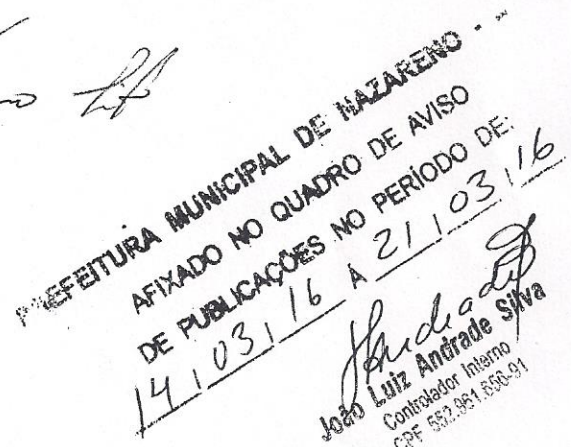 PREFEITURA MUNICIPAL DE NAZARENO - 
AFIXADO NO QUADRO DE AVISO
DE PUBLICAÇÕES NO PERÍODO DE:
14 / 03 / 16 A 21 / 03 / 16
João Luiz Andrade Silva
Controlador Interno
CPF 552.961.656-91